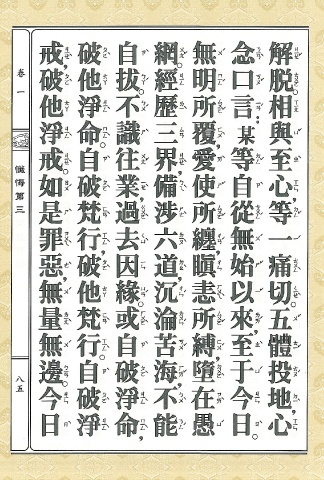 解脫。相與至心、等一痛切。五體投地、心
念口言：某等自從無始以來、至于今日。
無明所覆、愛使所纏、瞋恚所縛、墮在愚
網。經歷三界、備涉六道、沉淪苦海、不能
自拔。不識往業、過去因緣。或自破淨命、
破他淨命。自破梵行、破他梵行。自破淨
戒、破他淨戒。如是罪惡、無量無邊。今日
卷一
懺悔第三
八五